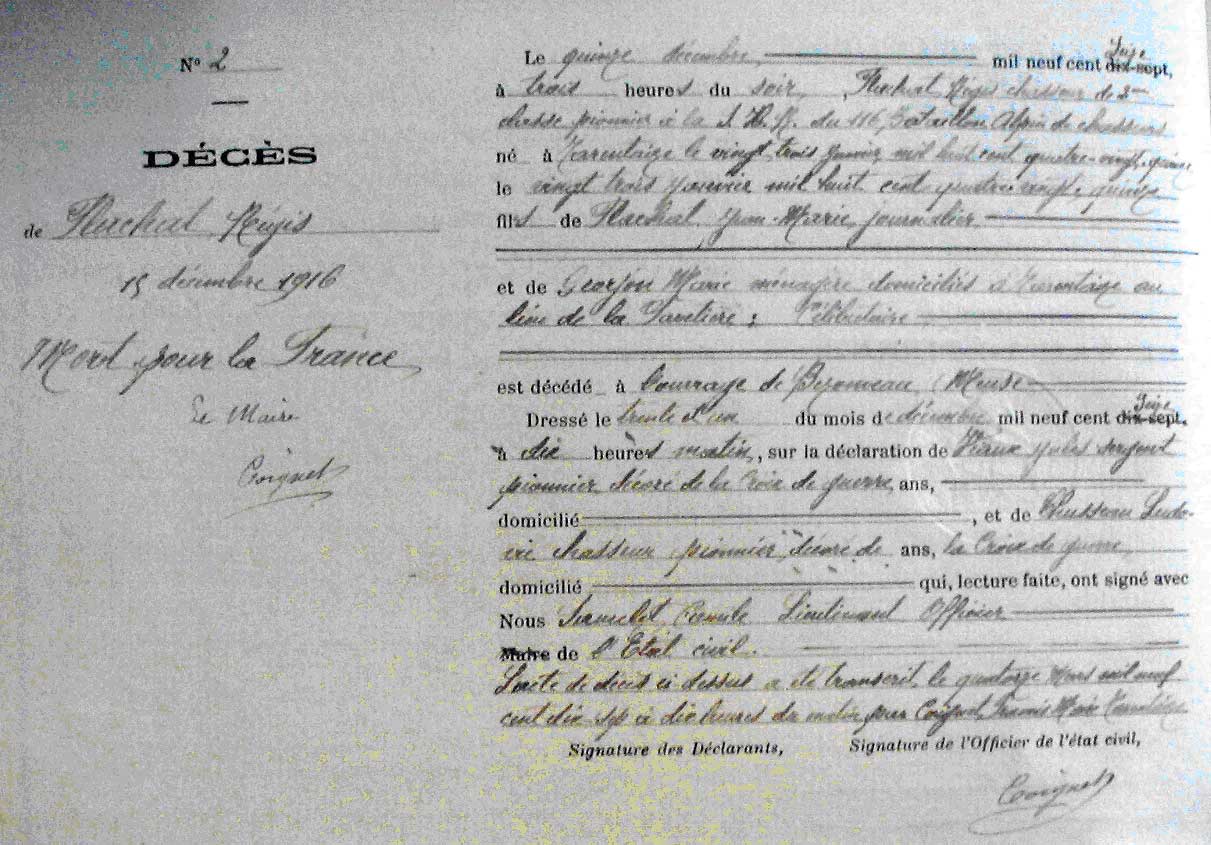 N° 2
DÉCÈS
de Rachat Régis
15 décembre 1916
Mort pour la France
Le Maire
Coignet
Le quinze décembre mil neuf cent dix-sept, Seize
à trois heures du soir, Rachat Régis chasseur de 2me
classe pionnier à la S. H. R. du 116, Bataillon Alpin de chasseurs
né à Tarentaize le vingt trois janvier mil huit cent quatre-vingt-quinze
le vingt trois janvier mil huit cent quatre vingt quinze
fils de Rachat Jean-Marie journalier
et de Georjon Marie ménagère domiciliés à Tarentaize au
lieu de la : Célibataire
est décédé à l'ouvrage de Bezonveau (Meuse
Dressé le trente et un du mois de décembre mil neuf cent dix-sept, Seize
à dix heures matin, sur la déclaration de Jules sergent
pionnier décoré de la Croix de guerre ans,
domicilié , et de Ludo-
vic chasseur pionnier, décoré de ans, la Croix de guerre
domicilié qui, lecture faite, ont signé avec
Nous Camille Lieutenant Officier
Maire de l'Etat civil.
L'acte de décès ci dessus a été transcrit le quatorze Mars mil neuf
cent dix sept à dix heures du matin par Coignet Maire
Signature des Déclarants, Signature de l'Officier de l'état civil,
Coignet